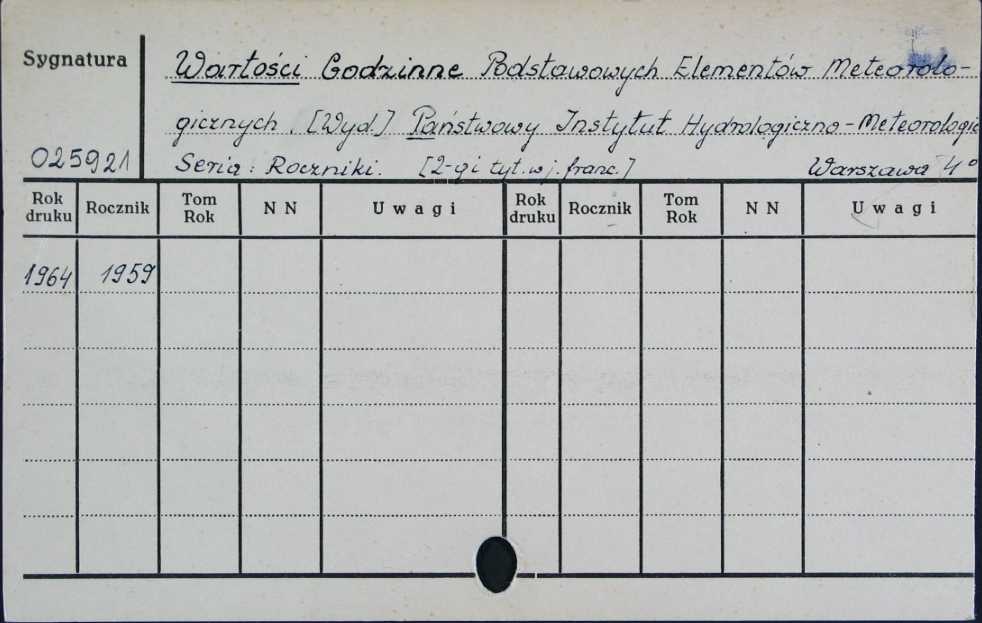 Sygnatura
Wartości Godzinne Podstawowych Elementów Meteorolo-
gicznych. [Wyd.] Państwowy Instytut Hydrologiczno-Meteorologic
025921
Seria: Roczniki. [2-gi tyt. w j. franc.] Warszawa 4°
Rok druku Rocznik Tom Rok N N Uwagi Rok druku Rocznik Tom Rok N N Uwagi
1964 1959